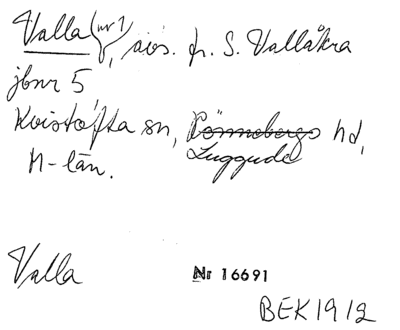 Valla (nr 1), avs. fr. S. Vallåkra
jbnr 5
Kvistofta sn, Rönnebergs hd,
Luggude
M-län.
Valla
Nr 16691
BEK 1912